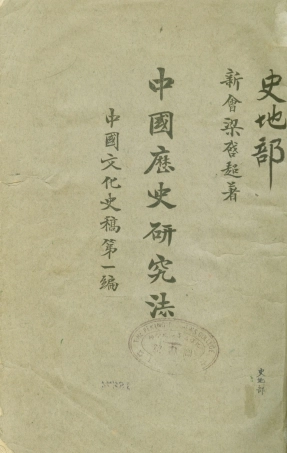 史地部
新會梁啓超著
中國歷史研究法
中國文化史稿第一編
史地部